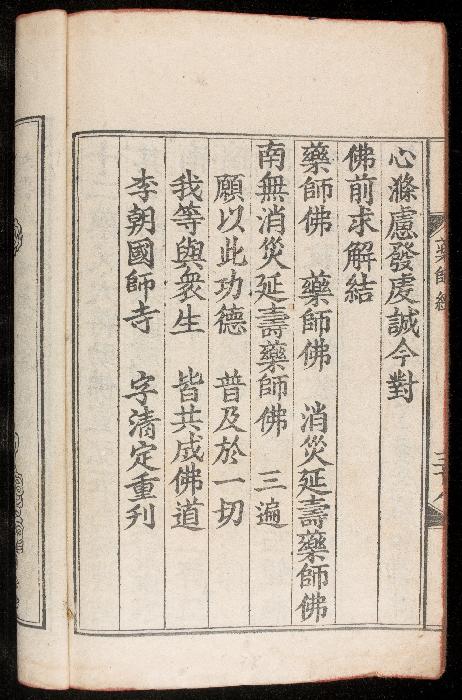 心滌慮發虔誠今對
佛前求解結
藥師佛　藥師佛　消災延壽藥師佛
南無消災延壽藥師佛　三遍
願以此功德　普及於一切
我等與衆生　皆共成佛道
李朝國師寺　字清定重刋
藥師經